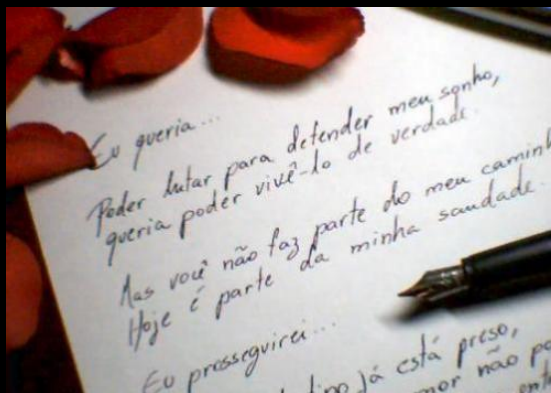 Eu queria...
Poder lutar para defender meu sonho,
queria poder vivê-lo de verdade.
Mas você não faz parte do meu caminh
Hoje é parte da minha saudade.
Eu prosseguirei...
já está preso,
não